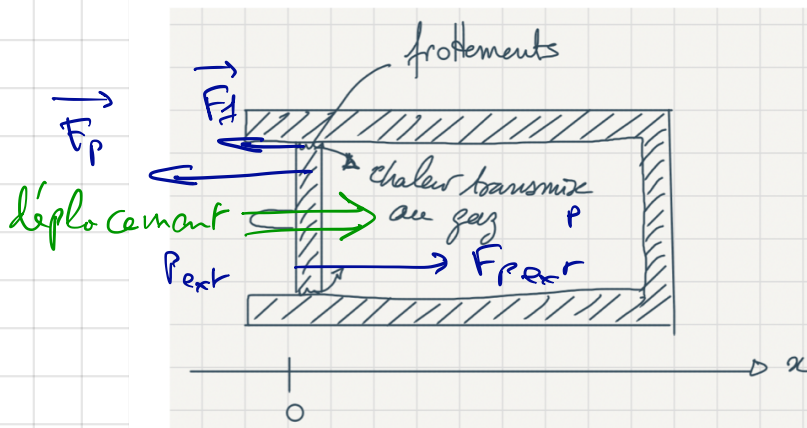 frottements
F_f
F_p
chaleur transmise
au gaz
P
déplacement
P_ext
F_Pext
x
O